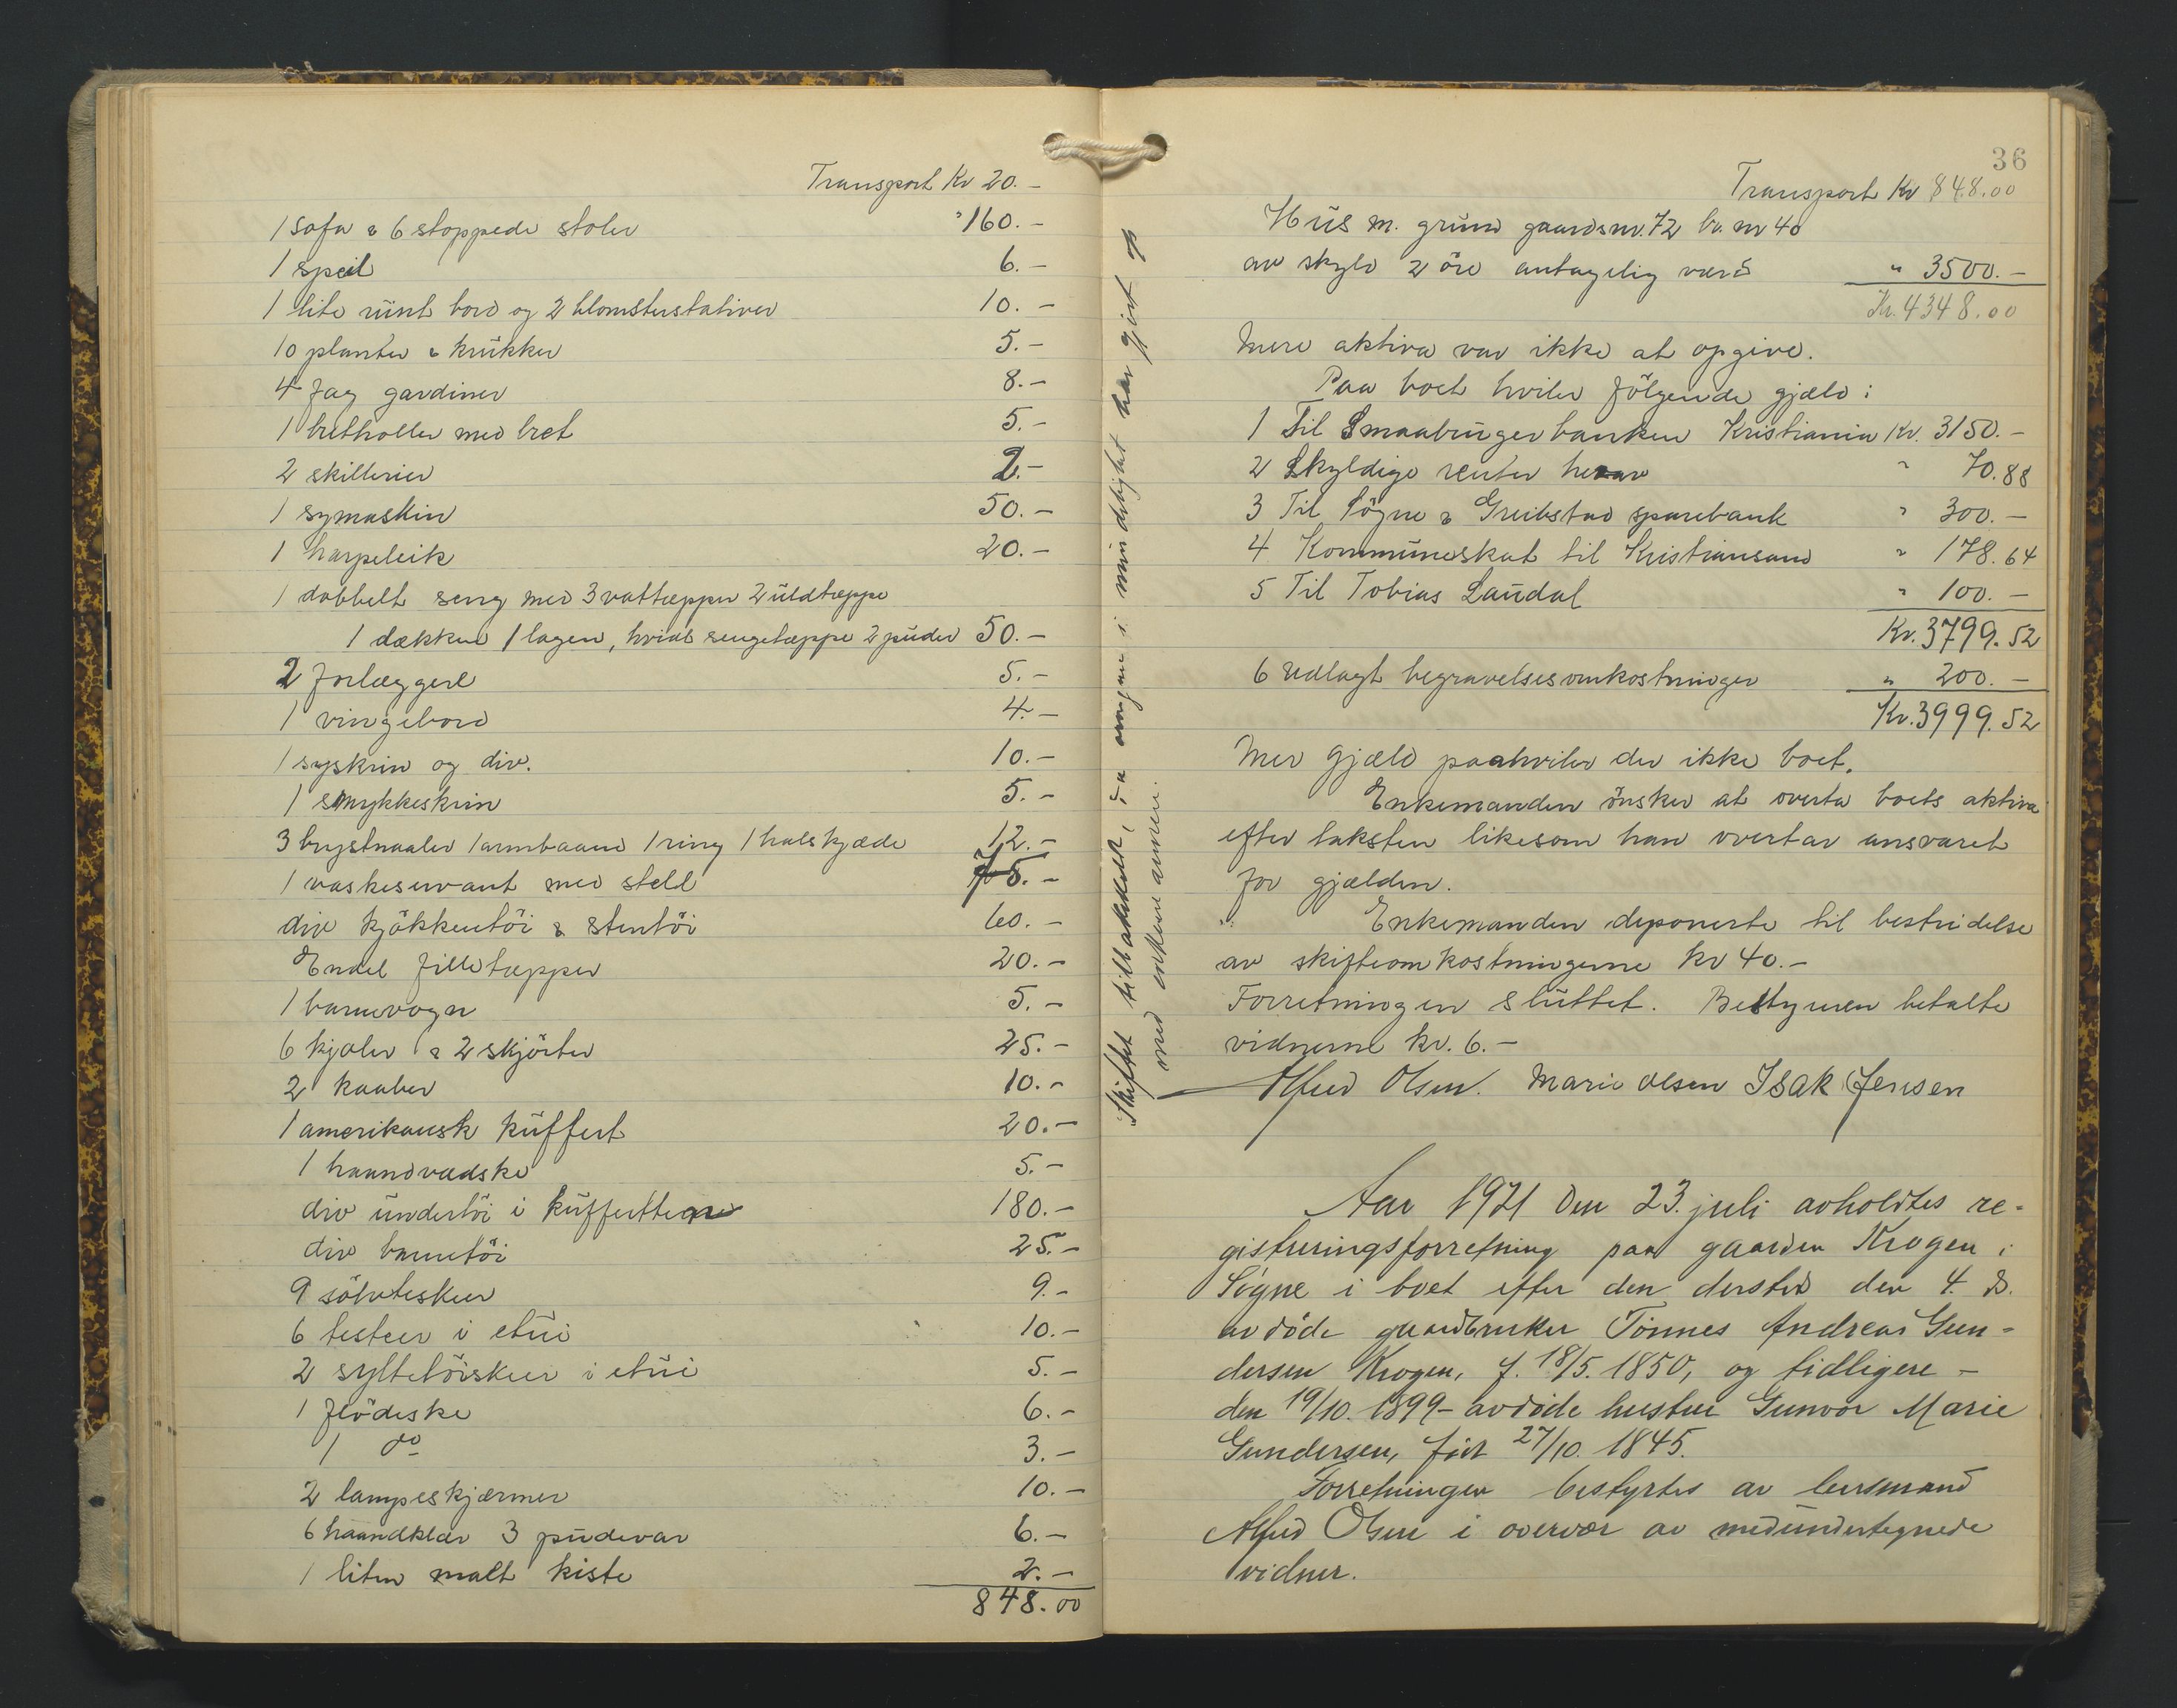 Transport Kr 20.-
1 sofa & 6 stoppede stoler "160.-
1 speil 6.-
1 lite rundt bord og 2 blomsterstativer 10.-
10 planter & krukker 5.-
4 fag gardiner 8.-
1 bretholler med bret 5.-
2 skillerier 2.-
1 symaskin 50.-
1 harpeleik 20.-
1 dobbelt seng med 3 vattæpper 2 uldtæppe
1 dækken 1 lagen, hvidt sengetæppe 2 puder 50.-
2 forlæggere 5.-
1 vingebord 4.-
1 syskrin og div. 10.-
1 smykkeskrin 5.-
3 brystnaaler 1 armbaand 1 ring 1 halskjæde 12.-
1 vaskeservant med stell 75.-
div kjökkentöi & stentöi 60.-
Endel filletæpper 20.-
1 barnevogn 5.-
6 kjoler & 2 skjörter 25.-
2 kaaber 10.-
1 amerikansk kuffert 20.-
1 haandvædske 5.-
div undertöi i kufferten 180.-
div barnetöi 25.-
9 sölvteskeer 9.-
6 teskeer i etui 10.-
2 syltetöiskeer i etui 5.-
1 flödeske 6.-
1 do 3.-
2 lampeskjærmer 10.-
6 haandklær 3 pudevar 6.-
1 liten malt kiste 2.-
848.00
Skiftet tilbakekaldt, da arvingene i mindelighet har gjort op
med enkemannen.
36
Transport Kr 848.00
Hus m. grund gaardsnr. 72 br. nr 40
av skyld 2 öre antagelig værd " 3500.-
Kr. 4348.00
Mere aktiva var ikke at opgive.
Paa boet hviler fölgende gjæld:
1 Til Smaabrugerbanken Kristiania Kr. 3150.-
2 Skyldige renter herav " 70.88
3 Til Sögne & Greibstad sparebank " 300.-
4 Kommuneskat til Kristiansand " 178.64
5 Til Tobias Laudal " 100.-
Kr. 3799.52
6 Udlagt begravelsesomkostninger " 200.-
Kr. 3999.52
Mer gjæld paahviler der ikke boet.
Enkemanden önsker at overta boets aktiva
efter taksten likesom han overtar ansvaret
for gjælden.
Enkemanden deponerte til bestridelse
av skifteomkostningerne kr 40.-
Forretningen sluttet. Bestyreren betalte
vidnerne kr. 6.-
Alfred Olsen. Marie Olsen Isak Jensen
Aar 1921 den 23. juli avholdtes re-
gistreringsforretning paa gaarden Krogen i
Søgne i boet efter den dersted den 4. ds.
avdöde gaardbruker Tönnes Andreas Gun-
dersen Krogen, f. 18/5. 1850, og tidligere -
den 19/10. 1899 - avdöde hustru Gunvor Marie
Gundersen, födt 27/10. 1845.
Forretningen bestyrtes av lensmand
Alfred Olsen i overvær av medundertegnede
vidner.